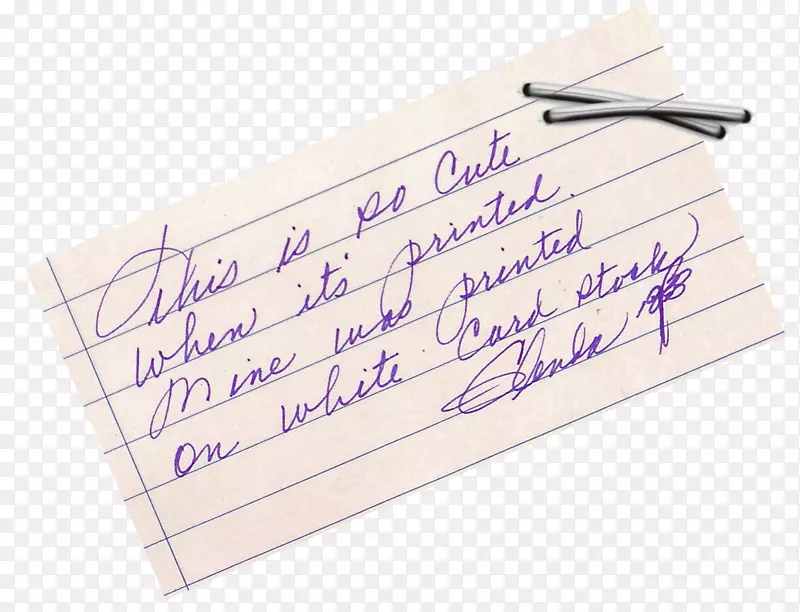 This is so Cute
when it's printed.
Mine was printed
on white Card stock
Glenda